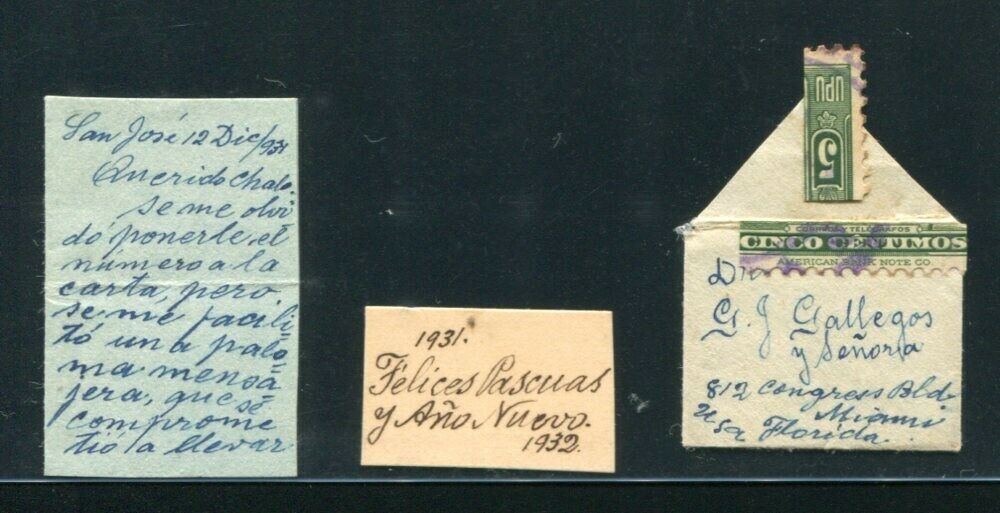 San José 12 Dic/931
Querido Chalo.
se me olvi
do ponerle el
número a la
carta, pero
se me facili
tó una palo=
ma mensa=
jera, que se
comprome
tió a llevar
1931.
Felices Pascuas
y Año Nuevo.
1932.
UPU
5
CORREOS Y TELEGRAFOS
CINCO CENTIMOS
AMERICAN BANK NOTE CO
G. J Gallegos
y Señora
812 Congress Bld.
Miami
USA Florida.